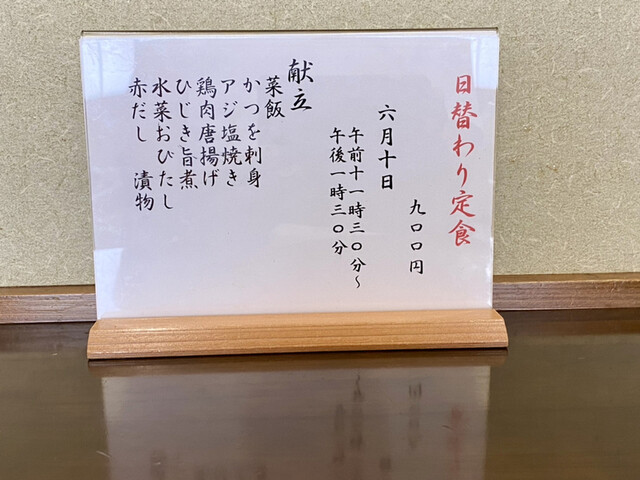 日替わり定食
九〇〇円
六月十日
午前十一時三〇分〜
午後一時三〇分
献立
菜飯
かつを刺身
アジ塩焼き
鶏肉唐揚げ
ひじき旨煮
水菜おひたし
赤だし 漬物